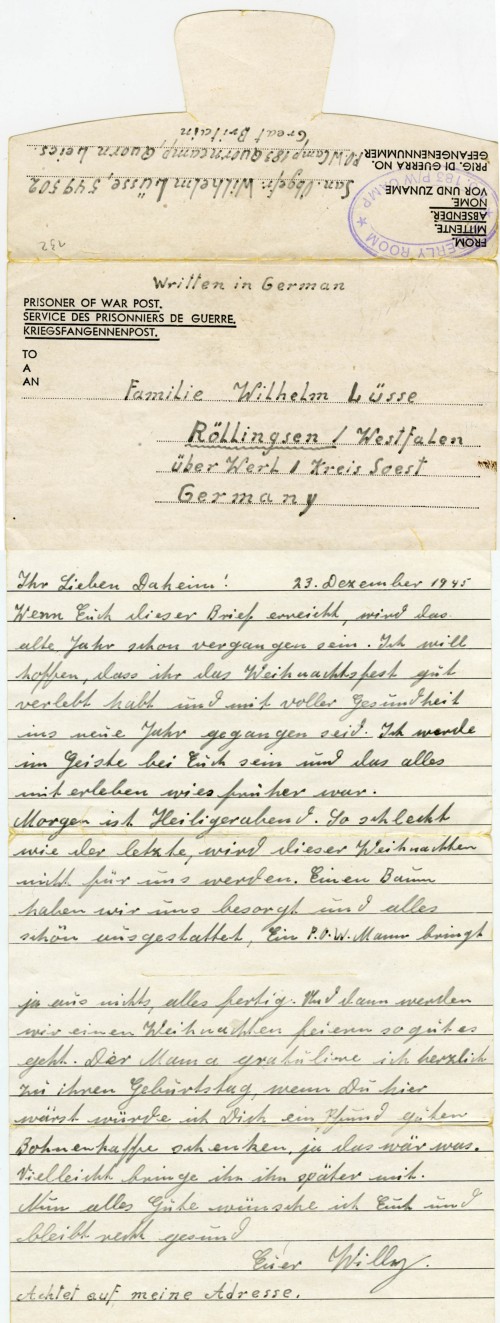 San. Ogefr. Wilhelm Lüsse, 549502
P.O.W. Camp 183 Quorncamp, Quorn Leics
Great Britain
FROM.
MITTENTE.
ABSENDER.
NOME.
VOR UND ZUNAME
PRIG. DI GUERRA NO.
GEFANGENENNUMMER:
ORDERLY ROOM
183 P/W CAMP
232
Written in German
PRISONER OF WAR POST.
SERVICE DES PRISONNIERS DE GUERRE.
KRIEGSFANGENNENPOST.
TO
A
AN
Familie Wilhelm Lüsse
Röllingsen / Westfalen
über Werl / Kreis Soest
Germany
Ihr Lieben Daheim! 23. Dezember 1945
Wenn Euch dieser Brief erreicht, wird das
alte Jahr schon vergangen sein. Ich will
hoffen, dass ihr das Weihnachtsfest gut
verlebt habt und mit voller Gesundheit
ins neue Jahr gegangen seid. Ich werde
im Geiste bei Euch sein und das alles
mit erleben wies früher war.
Morgen ist Heiligerabend. So schlecht
wie der letzte, wird dieser Weihnachten
nicht für uns werden. Einen Baum
haben wir uns besorgt und alles
schön ausgestattet, Ein P.O.W. Mann bringt
ja aus nichts, alles fertig. Und dann werden
wir einen Weihnachten feiern so gut es
geht. Der Mama gratuliere ich herzlich
zu ihren Geburtstag, wenn Du hier
wärst würde ich Dich ein Pfund guten
Bohnenkaffe schenken, ja das wär was.
Vielleicht bringe ihn ihn später mit.
Nun alles Gute wünsche ich Euch und
bleibt recht gesund
Euer Willy.
Achtet auf meine Adresse.